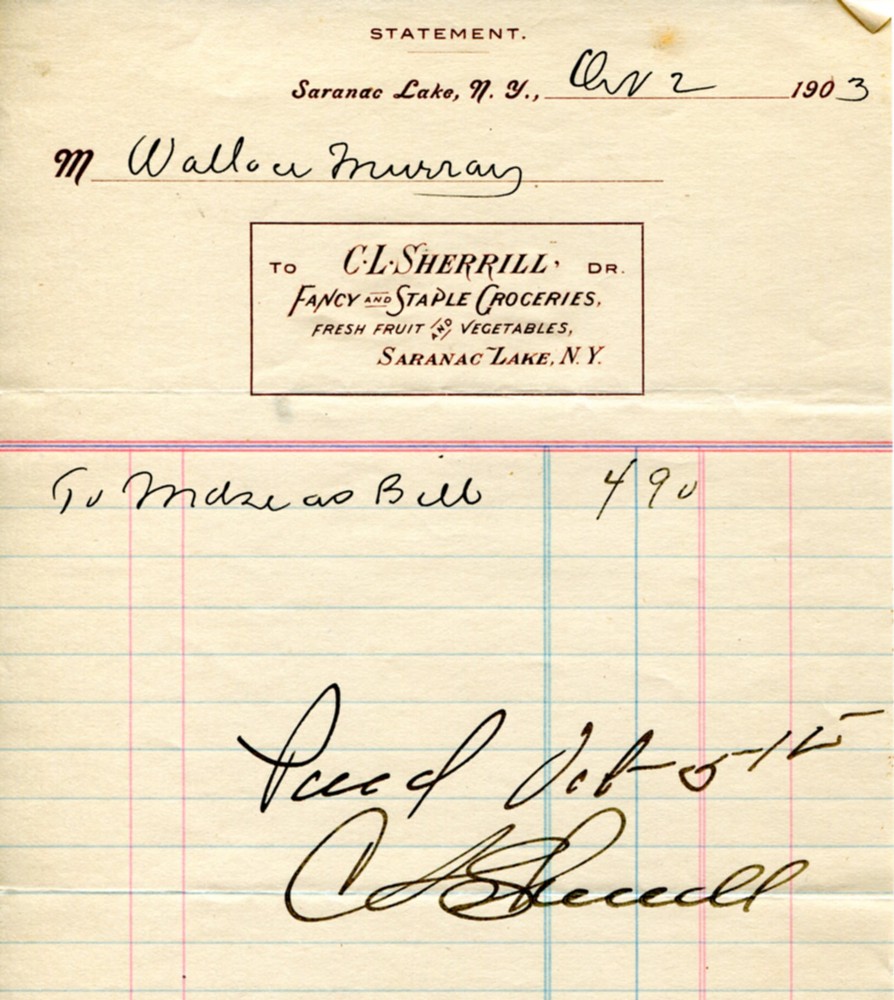 STATEMENT.
Saranac Lake, N. Y., 2 1903
M Wallace Murray
TO C. L. SHERRILL, DR.
FANCY AND STAPLE GROCERIES,
FRESH FRUIT AND VEGETABLES,
SARANAC LAKE, N. Y.
To Mdse as Bill 4 90
Paid Oct 5
C L Sherrill